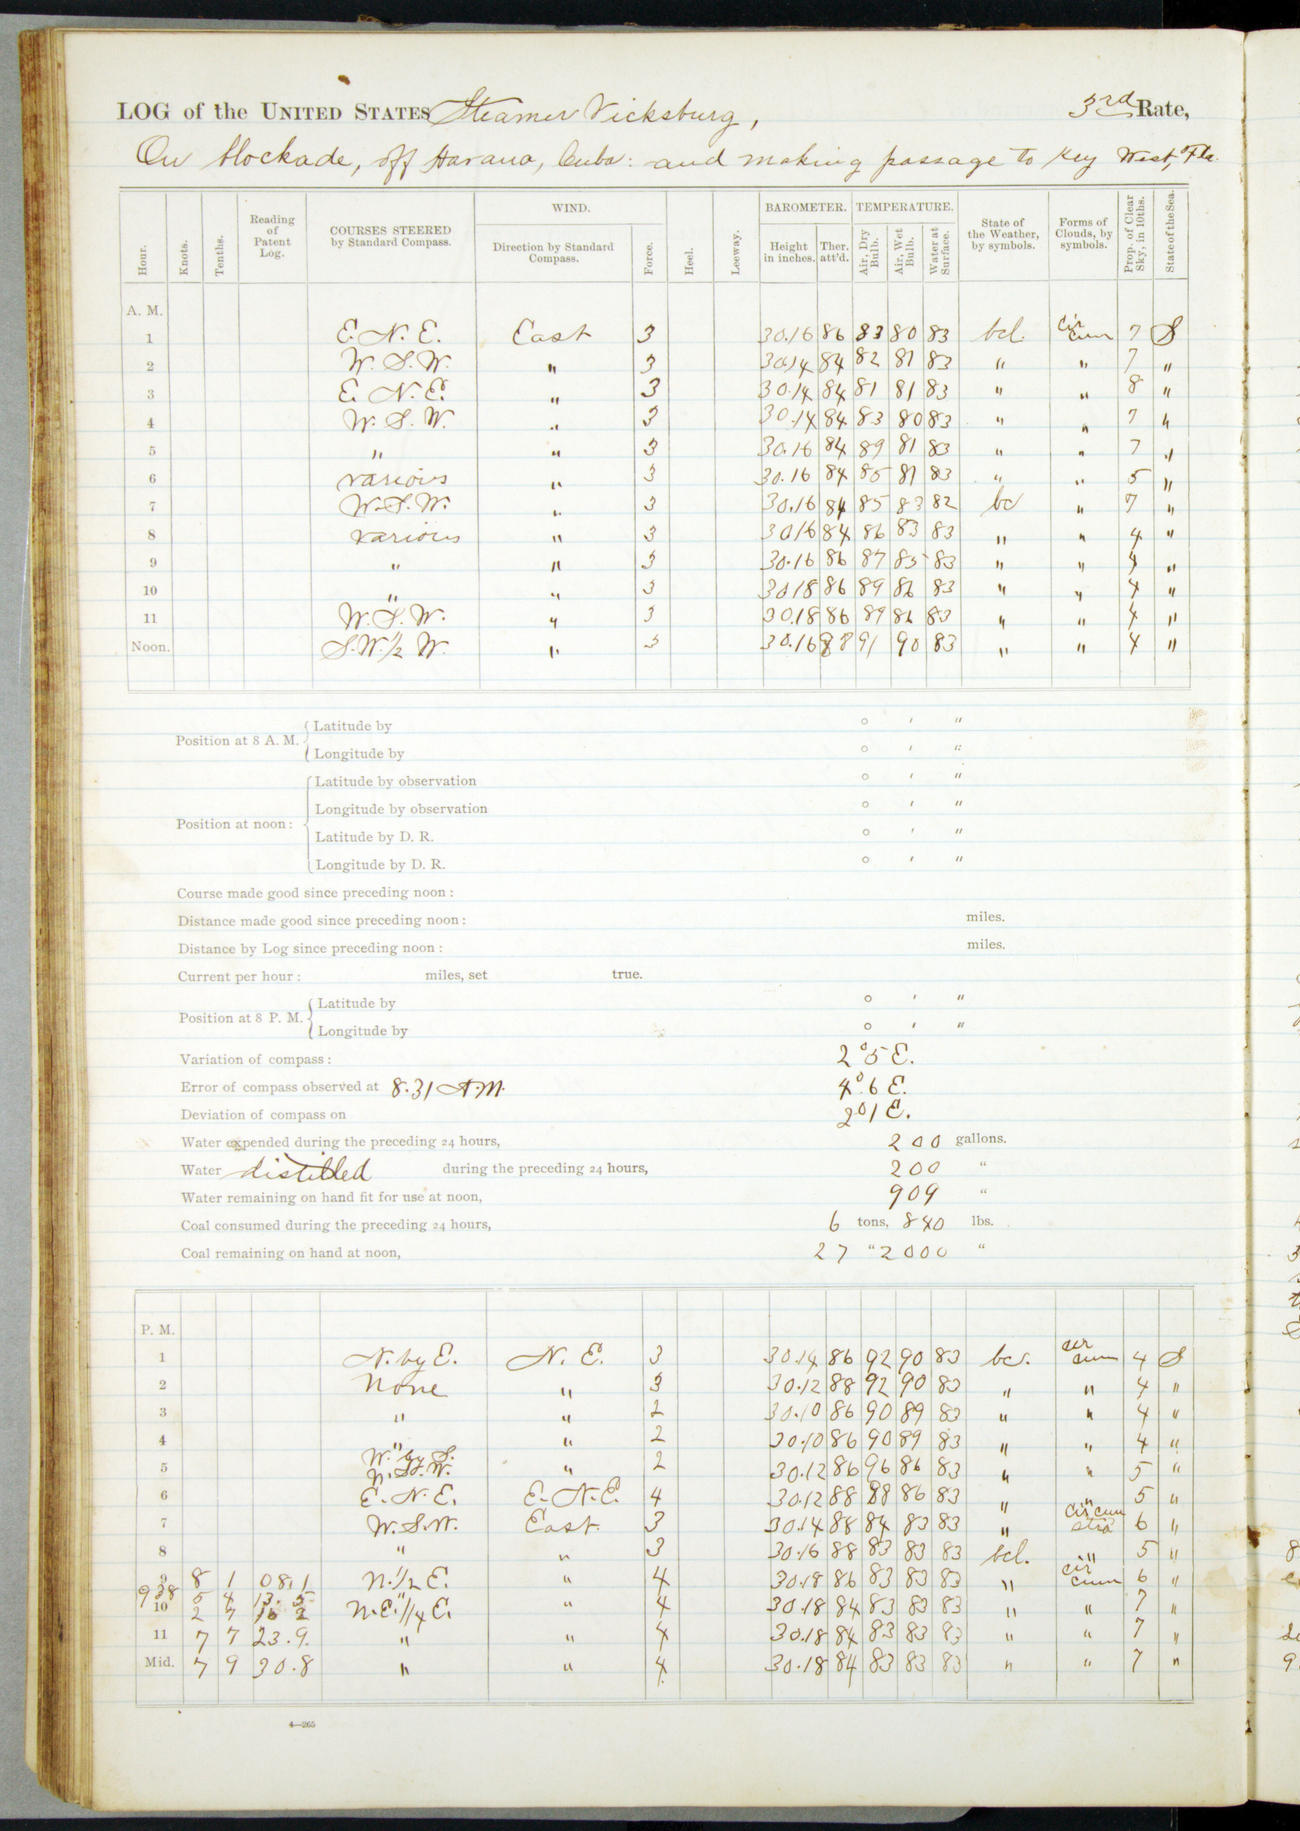 LOG of the UNITED STATES Steamer Vicksburg, 3rd Rate,
On blockade, off Havana, Cuba: and making passage to Key West, Fla.
Hour. Knots. Tenths. Reading of Patent Log. COURSES STEERED by Standard Compass. WIND. Direction by Standard Compass. Force. Heel. Leeway. BAROMETER. Height in inches. Ther. att'd. TEMPERATURE. Air, Dry Bulb. Air, Wet Bulb. Water at Surface. State of the Weather, by symbols. Forms of Clouds, by symbols. Prop. of Clear Sky, in 10ths. State of the Sea.
A. M.
1 E. N. E. East 3 30.16 86 83 80 83 bcl. cir cum 7 S
2 W. S. W. " 3 30.14 84 82 81 83 " " 7 "
3 E. N. E. " 3 30.14 84 81 81 83 " " 8 "
4 W. S. W. " 3 30.14 84 83 80 83 " " 7 "
5 " " 3 30.16 84 89 81 83 " " 7 "
6 various " 3 30.16 84 85 81 83 " " 5 "
7 W. S. W. " 3 30.16 84 85 83 82 bc " 7 "
8 various " 3 30 16 84 86 83 83 " " 4 "
9 " " 3 30.16 86 87 85 83 " " 4 "
10 " " 3 30 18 86 89 86 83 " " 4 "
11 W. S. W. " 3 30.18 86 89 86 83 " " 4 "
Noon. S. W. 1/2 W. " 3 30.16 88 91 90 83 " " 4 "
Position at 8 A. M. Latitude by ° ' "
Longitude by ° ' "
Position at noon: Latitude by observation ° ' "
Longitude by observation ° ' "
Latitude by D. R. ° ' "
Longitude by D. R. ° ' "
Course made good since preceding noon:
Distance made good since preceding noon: miles.
Distance by Log since preceding noon: miles.
Current per hour: miles, set true.
Position at 8 P. M. Latitude by ° ' "
Longitude by ° ' "
Variation of compass: 2°5 E.
Error of compass observed at 8.31 A.M. 4°.6 E.
Deviation of compass on 2°1 E.
Water expended during the preceding 24 hours, 200 gallons.
Water distilled during the preceding 24 hours, 200 "
Water remaining on hand fit for use at noon, 909 "
Coal consumed during the preceding 24 hours, 6 tons, 840 lbs.
Coal remaining on hand at noon, 27 " 2000 "
P. M.
1 N. by E. N. E. 3 30.14 86 92 90 83 bc. cir cum 4 S
2 None " 3 30.12 88 92 90 83 " " 4 "
3 " " 2 30.10 86 90 89 83 " " 4 "
4 " " 2 30.10 86 90 89 83 " " 4 "
5 W. by S. W. S. W. " 2 30.12 86 96 86 83 " " 5 "
6 E. N. E. E. N. E. 4 30.12 88 88 86 83 " " 5 "
7 W. S. W. East. 3 30.14 88 84 83 83 " cir cum stra 6 "
8 " " 3 30.16 88 83 83 83 bcl. " 5 "
9 8 1 08.1 N. 1/2 E. " 4 30.18 86 83 83 83 " cir cum 6 "
9 38 5 4 13.5
10 2 7 16 2 N. E. 1/4 E. " 4 30.18 84 83 83 83 " " 7 "
11 7 7 23.9. " " 4 30.18 84 83 83 83 " " 7 "
Mid. 7 9 30.8 " " 4 30.18 84 83 83 83 " " 7 "
4—265